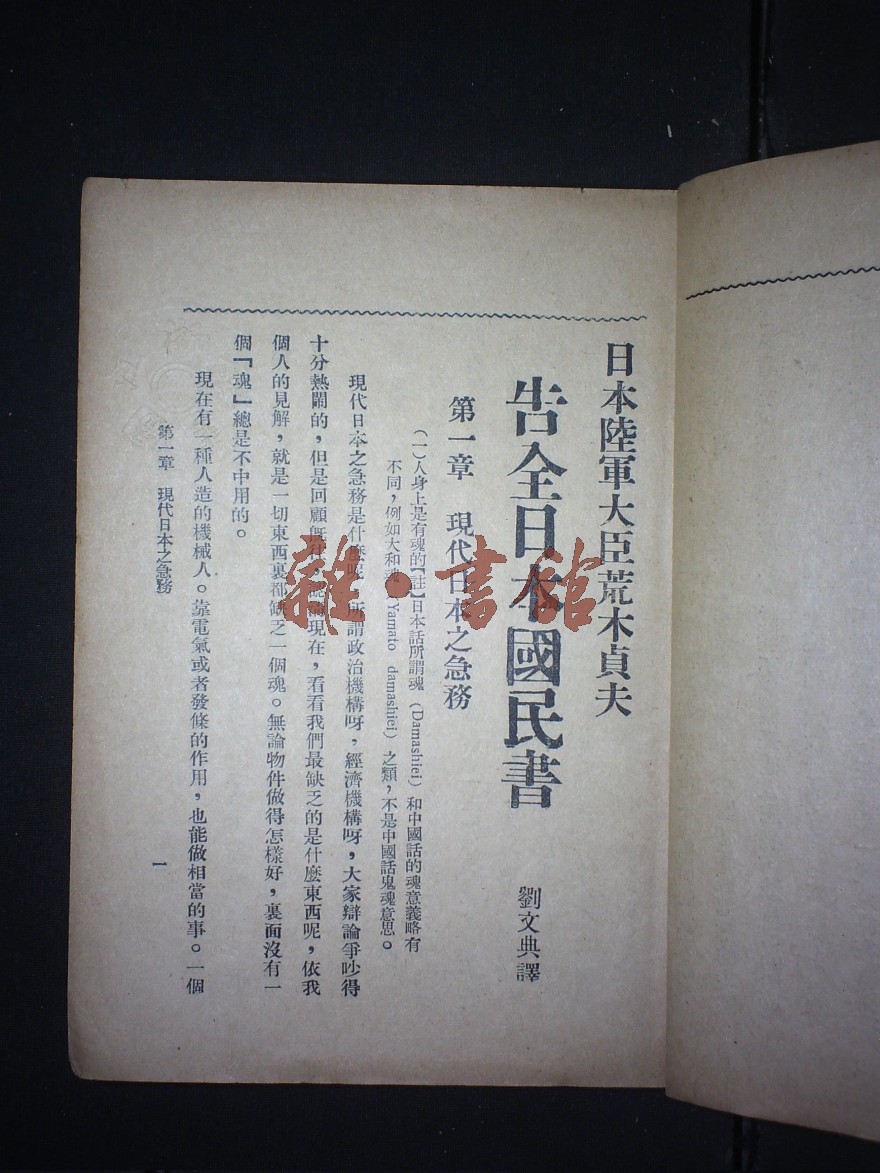 日本陸軍大臣荒木貞夫
告全日本國民書
劉文典譯
第一章 現代日本之急務
(一)人身上是有魂的【註】日本話所謂魂 (Damashiei) 和中國話的魂意義略有
不同,例如大和魂 (Yamato damashiei) 之類,不是中國話鬼魂意思。
現代日本之急務是什麼呢,所謂政治機構呀,經濟機構呀,大家辯論爭吵得
十分熱鬧的,但是回顧旣往,認清現在,看看我們最缺乏的是什麼東西呢,依我
個人的見解,就是一切東西裏都缺乏一個魂。無論物件做得怎樣好,裏面沒有一
個「魂」總是不中用的。
現在有一種人造的機械人。靠電氣或者發條的作用,也能做相當的事。一個
第一章 現代日本之急務
一
雜·書館